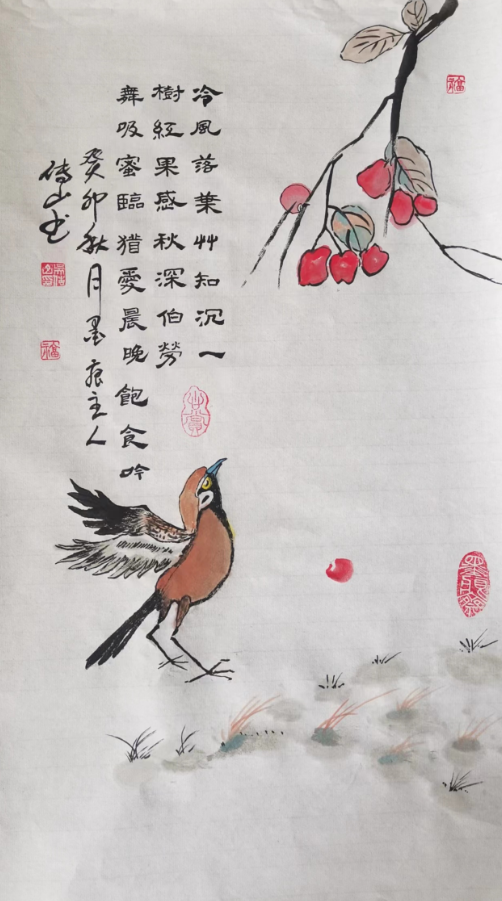 冷風落葉艸知沉一
樹紅果感秋深伯勞
舞吸蜜臨猎愛晨晚飽食吟
癸卯秋月墨痕主人
山书